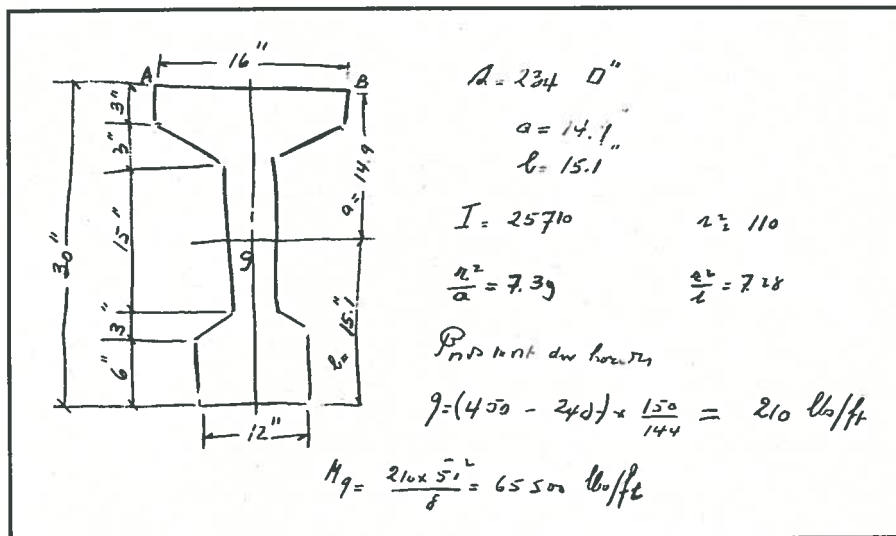 16"
A B
3"
3"
15"
3"
6"
30"
a= 14.9
g
b= 15.1"
12"
A = 234 □"
a = 14.9"
b= 15.1"
I = 25710 r²= 110
r²/a = 7.39 r²/b = 7.28
g=(450 - 240) x 150/144 = 210 lbs/ft
Mg= 210x50²/8 = 65500 lbs/ft